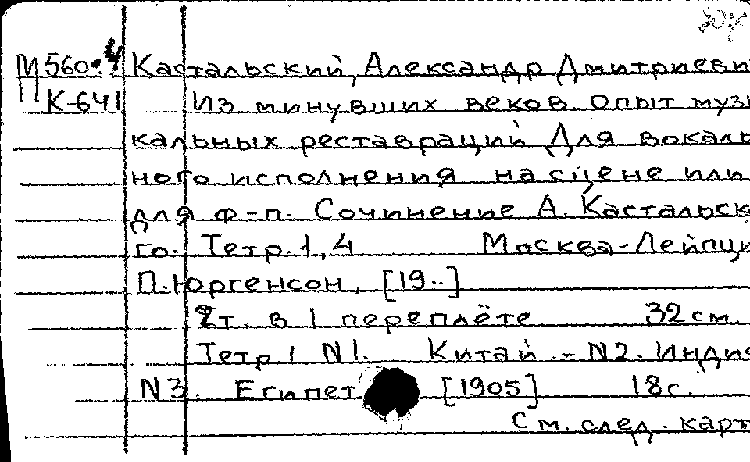 М560.4 Кастальский, Александр Дмитриеви
П К-641 Из минувших веков. Опыт музы
кальных реставраций Для вокаль
ного исполнения на сцене или
для ф-п. Сочинение А. Кастальск
го. Тетр. 1, 4 Москва-Лейпци
П. Юргенсон, [19..]
2т. в 1 переплёте 32 см.
Тетр 1 N1. Китай. - N2. Индия
N3. Египет [1905] 18 с.
См. след. карт